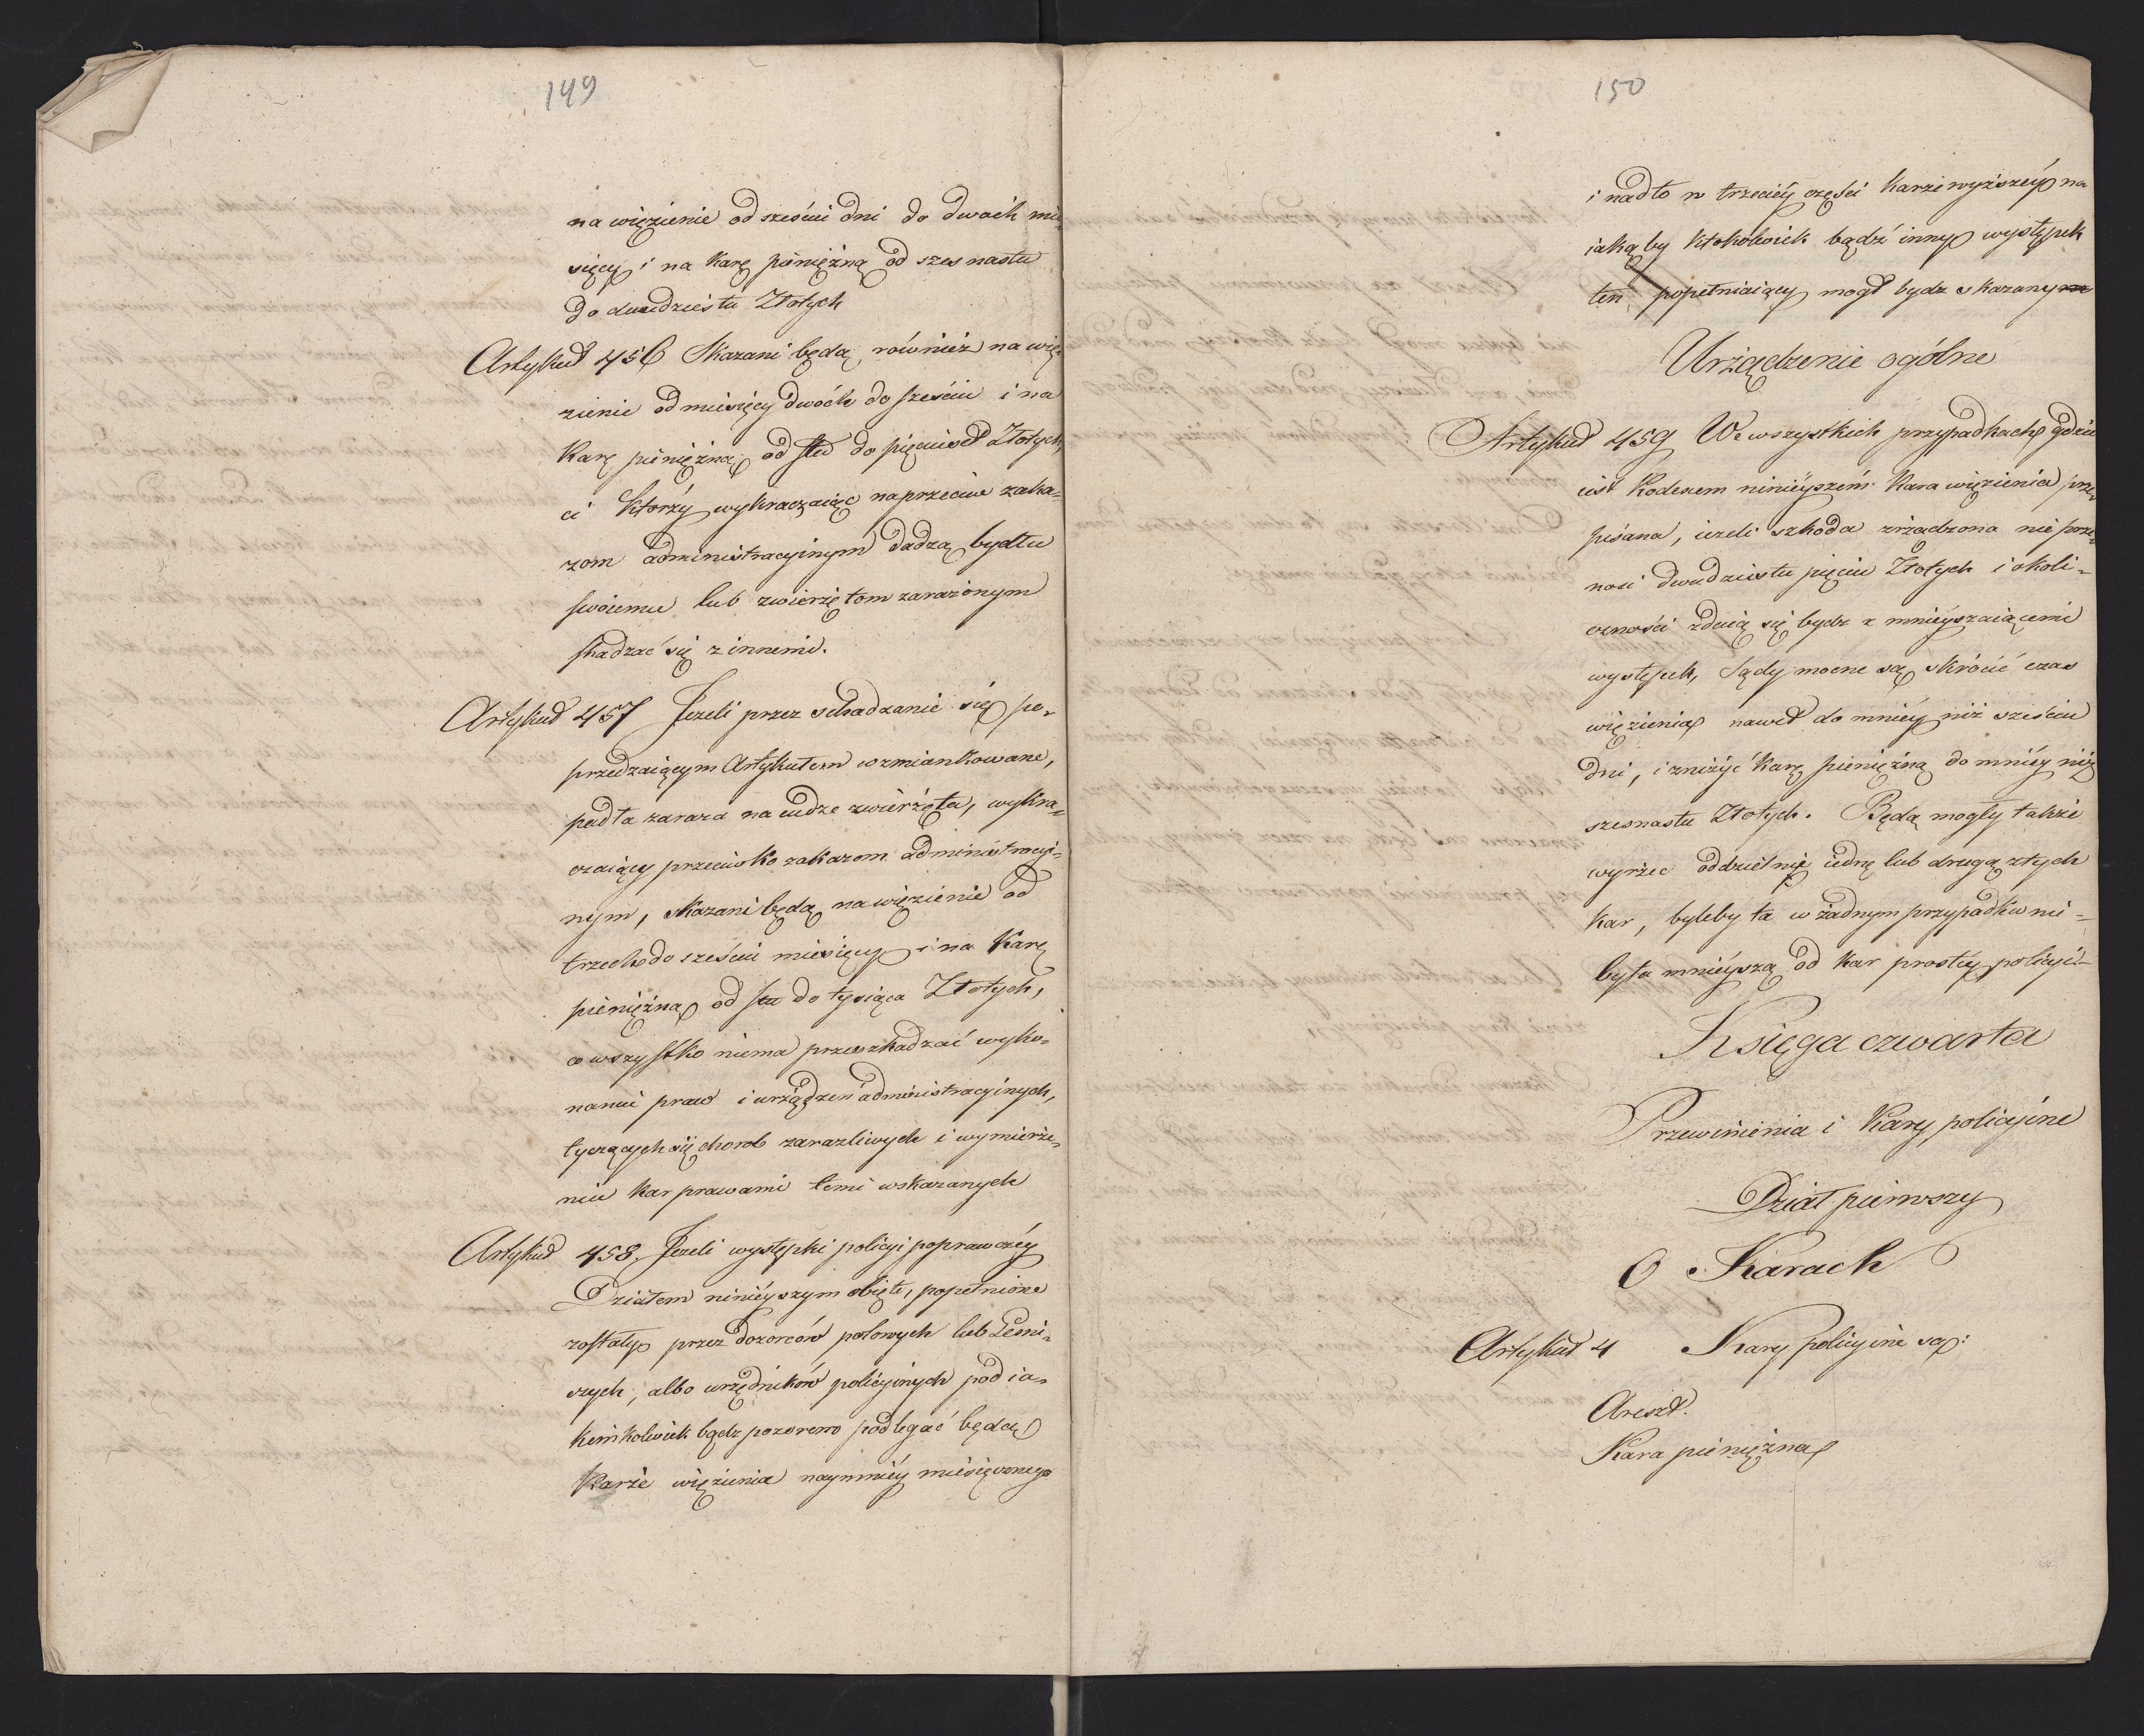 149
na więzienie od sześciu dni do dwoch mie-
sięcy i na karę pieniężną od szesnastu
do dwudziestu Złotych
Artykuł 456 Skazani będą również na wię-
zienie od miesięcy dwóch do sześciu i na
karę pieniężną od stu do pięciuset Złotych,
ci ktorzy wykraczaiąc naprzeciw zaka-
zom administracyinym dadzą bydłu
swoiemu lub zwierzętom zarażonym
shadzać się z innemi.
Artykuł 457 Jezeli przez schadzanie się po-
przedzaiącym Artykułem wzmiankowane,
padła zaraza na cudze zwierzęta, wykra-
czaiący przeciwko zakazom administracyi-
nym, skazani będą na więzienie od
trzech do sześciu miesięcy i na karę
pieniężną od stu do tysiąca Złotych,
co wszystko niema przeszkadzać wyko-
naniu praw i urządzeń administracyinych,
tyczących się chorob zarazliwych i wymierze-
niu kar prawami temi wskazanych
Artykuł 458. Jezeli występki policyi poprawczéy
Działem ninieyszym obięte, popełnione
zostały przez dozorców polowych lub Leśni-
czych, albo urzędników policyinych pod ia-
kimkolwiek bądz pozorem podlegać będą
karze więzienia naymniéy miesięcznego
150
i nadto w trzeciéy części karze wyższéy na
iaką by ktokolwiek bądź inny występek
ten popełniaiący mogł bydz skazanym
Urządzenie ogólne
Artykuł 459 We wszystkich przypadkach gdzie
iest Kodexem ninieyszém kara więzienia prze-
pisana, iezeli szkoda zrządzona nie prze-
nosi dwudziestu pięciu Złotych i okoli-
czności zdaią się bydz zmnieyszaiącemi
występek, Sądy mocne są skrócić czas
więzienia nawet do mniéy niż sześciu
dni, i zniżyć karę pieniężną do mniéy niż
szesnastu Złotych. Będą mogły także
wyrzec oddzielnie iednę lub drugą z tych
kar, byleby ta w żadnym przypadku nie-
była mnieyszą od kar prostéy policyi
Księga czwarta
Przewinienia i Kary policyine
Dział pierwszy
O Karach
Artykuł 4 Kary policyine są:
Areszt.
Kara pieniężna